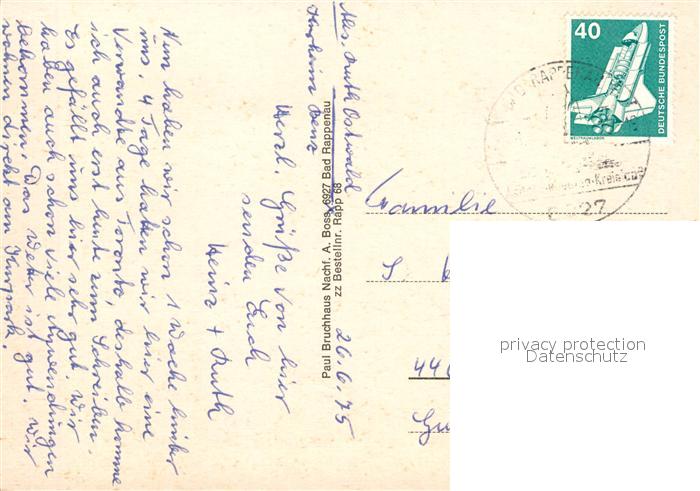 Abs. Ruth Ostwald
26.6.75
Nun haben wir schon 1 Woche hinter
uns. 4 Tage hatten wir hier eine
Verwandte aus Toronto, deshalb komme
ich auch erst heute zum Schreiben.
Es gefällt uns hier sehr gut. Wir
haben auch schon viele Anwendungen
bekommen. Das Wetter ist gut. Wir
wohnen direkt am Kurpark.
Herzl. Grüße von hier
senden Euch
Heinz + Ruth
Paul Bruchhaus Nachf. A. Boss, 6927 Bad Rappenau
zz Bestellnr. Rapp 68
40
DEUTSCHE BUNDESPOST
WELTRAUMLABOR
BAD RAPPENAU
6927
Familie
S.
440
privacy protection
Datenschutz